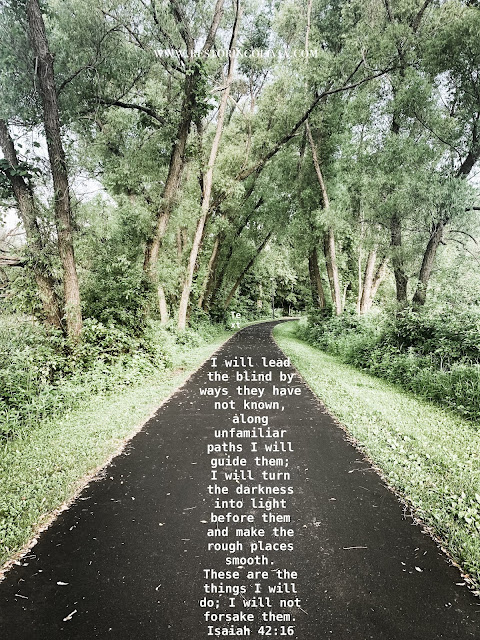 WWW.RESTORINGOLIVIA.COM
I will lead
the blind by
ways they have
not known,
along
unfamiliar
paths I will
guide them;
I will turn
the darkness
into light
before them
and make the
rough places
smooth.
These are the
things I will
do; I will not
forsake them.
Isaiah 42:16